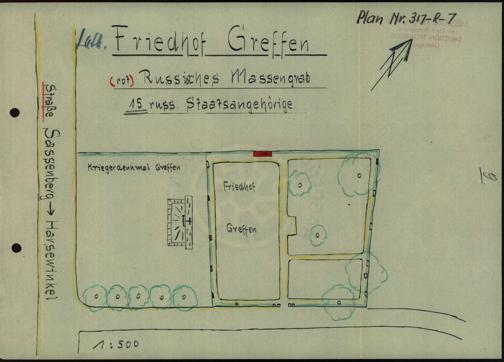 Plan Nr. 317-R-7
kath. Friedhof Greffen
(rot) Russisches Massengrab
15 russ. Staatsangehörige
Straße Sassenberg → Harsewinkel
Kriegerdenkmal Greffen
Friedhof
Greffen
1:500